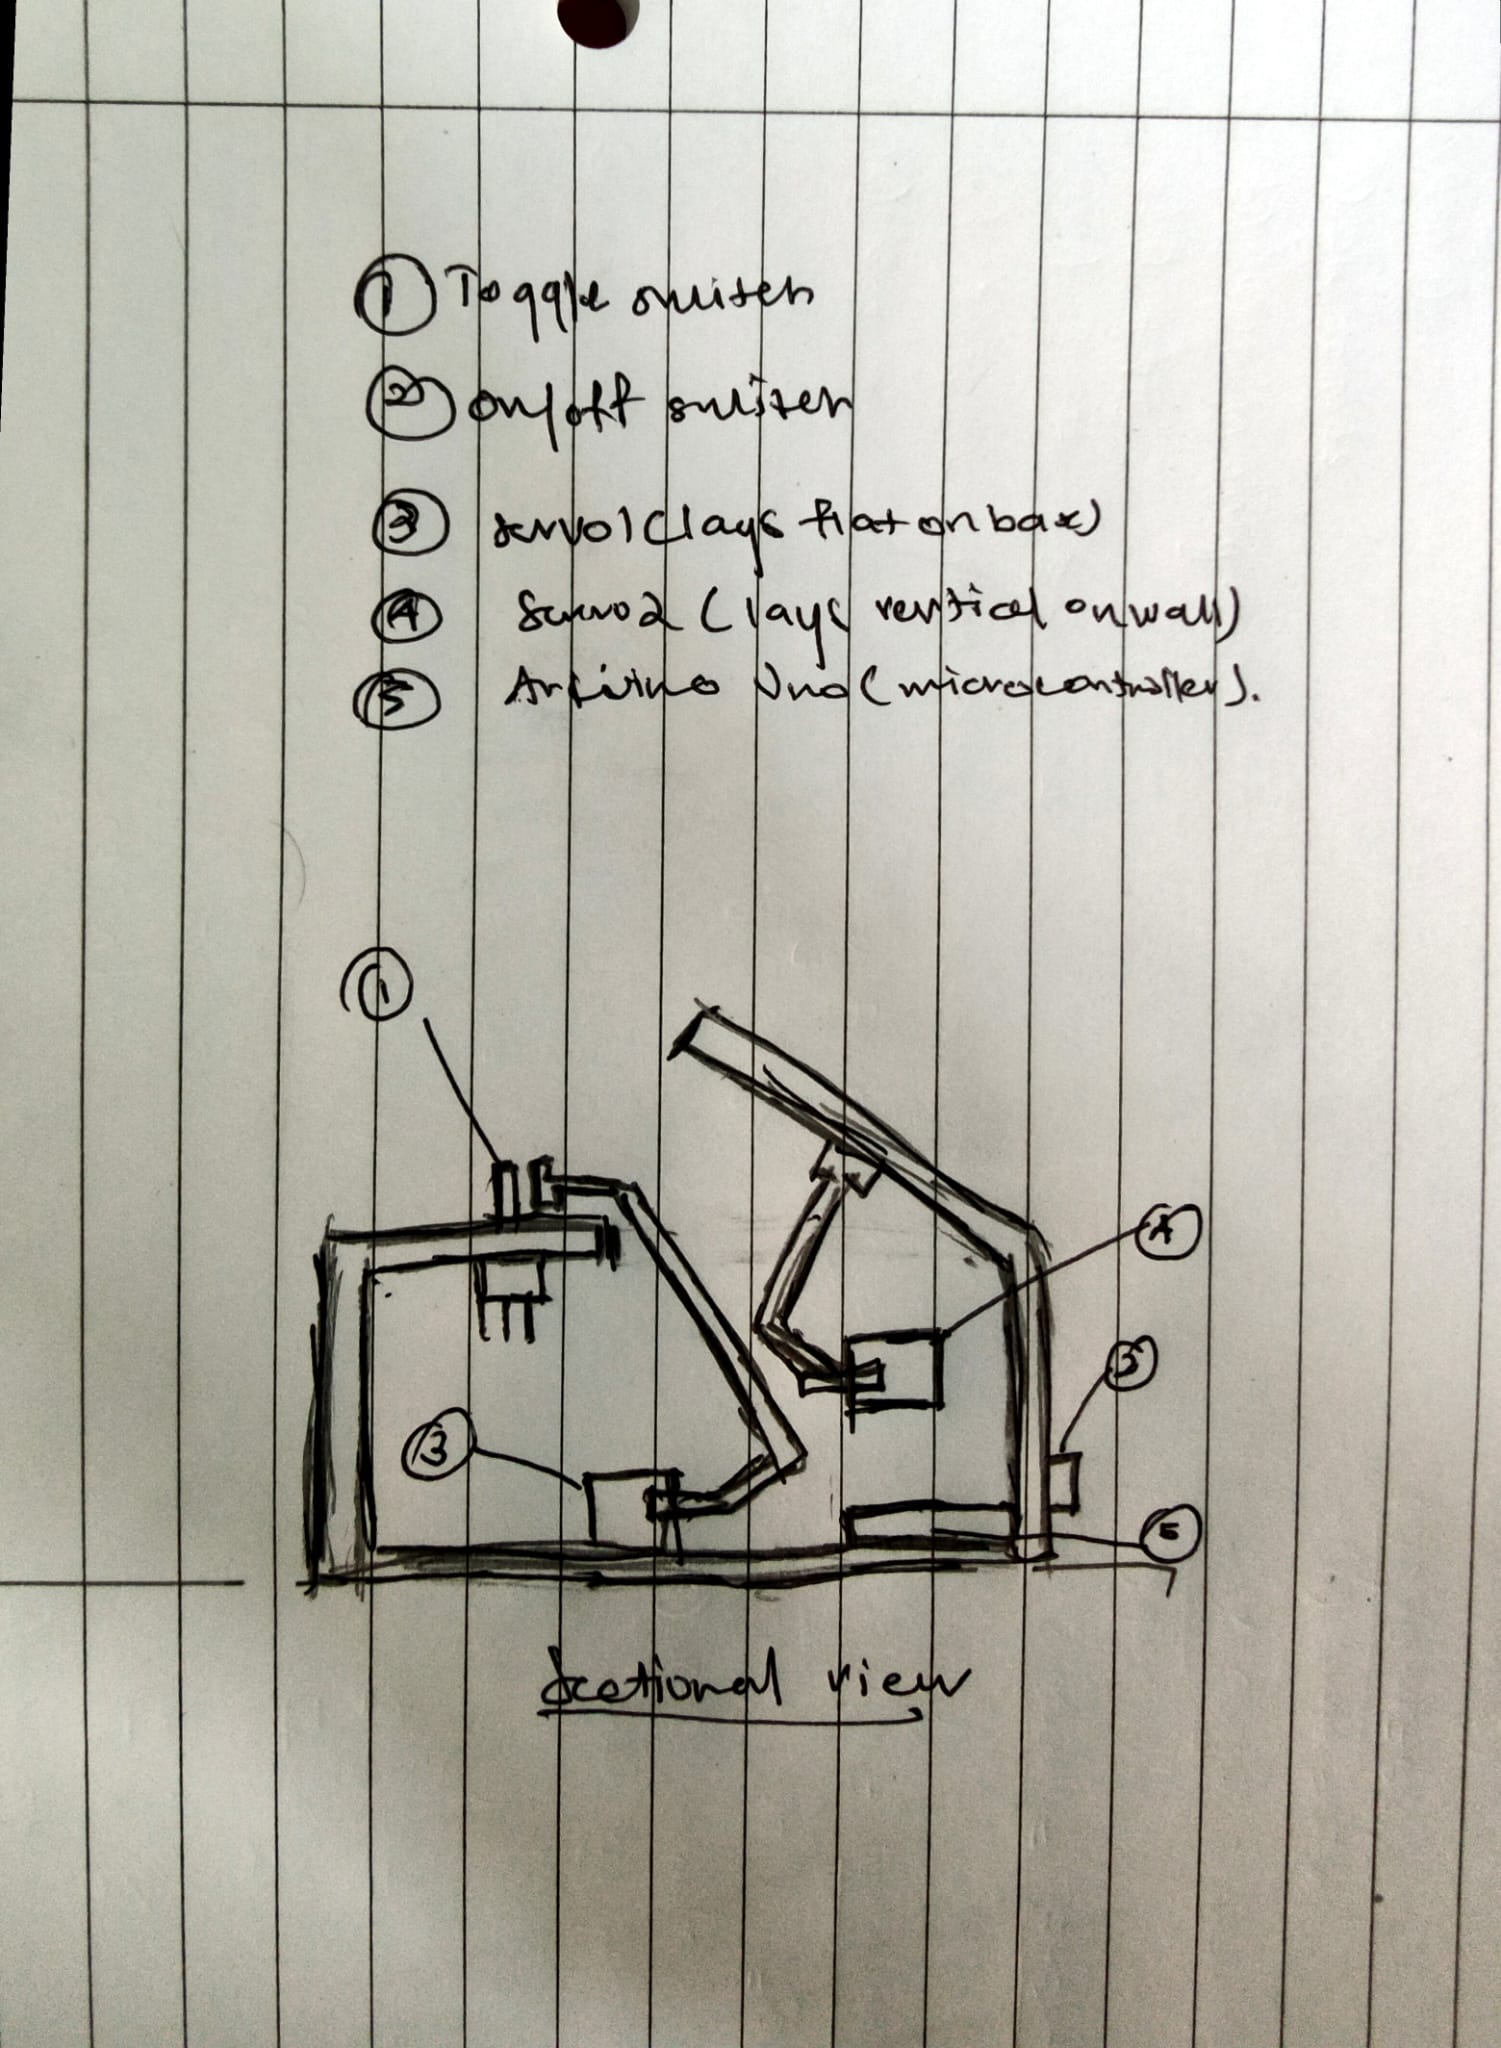 ① Toggle switch
② on/off switch
③ servo1 (lays flat on bax)
④ Servo2 (lays vertical on wall)
⑤ Arduino Uno (microcontroller).
①
④
⑤
③
⑤
Sectional view